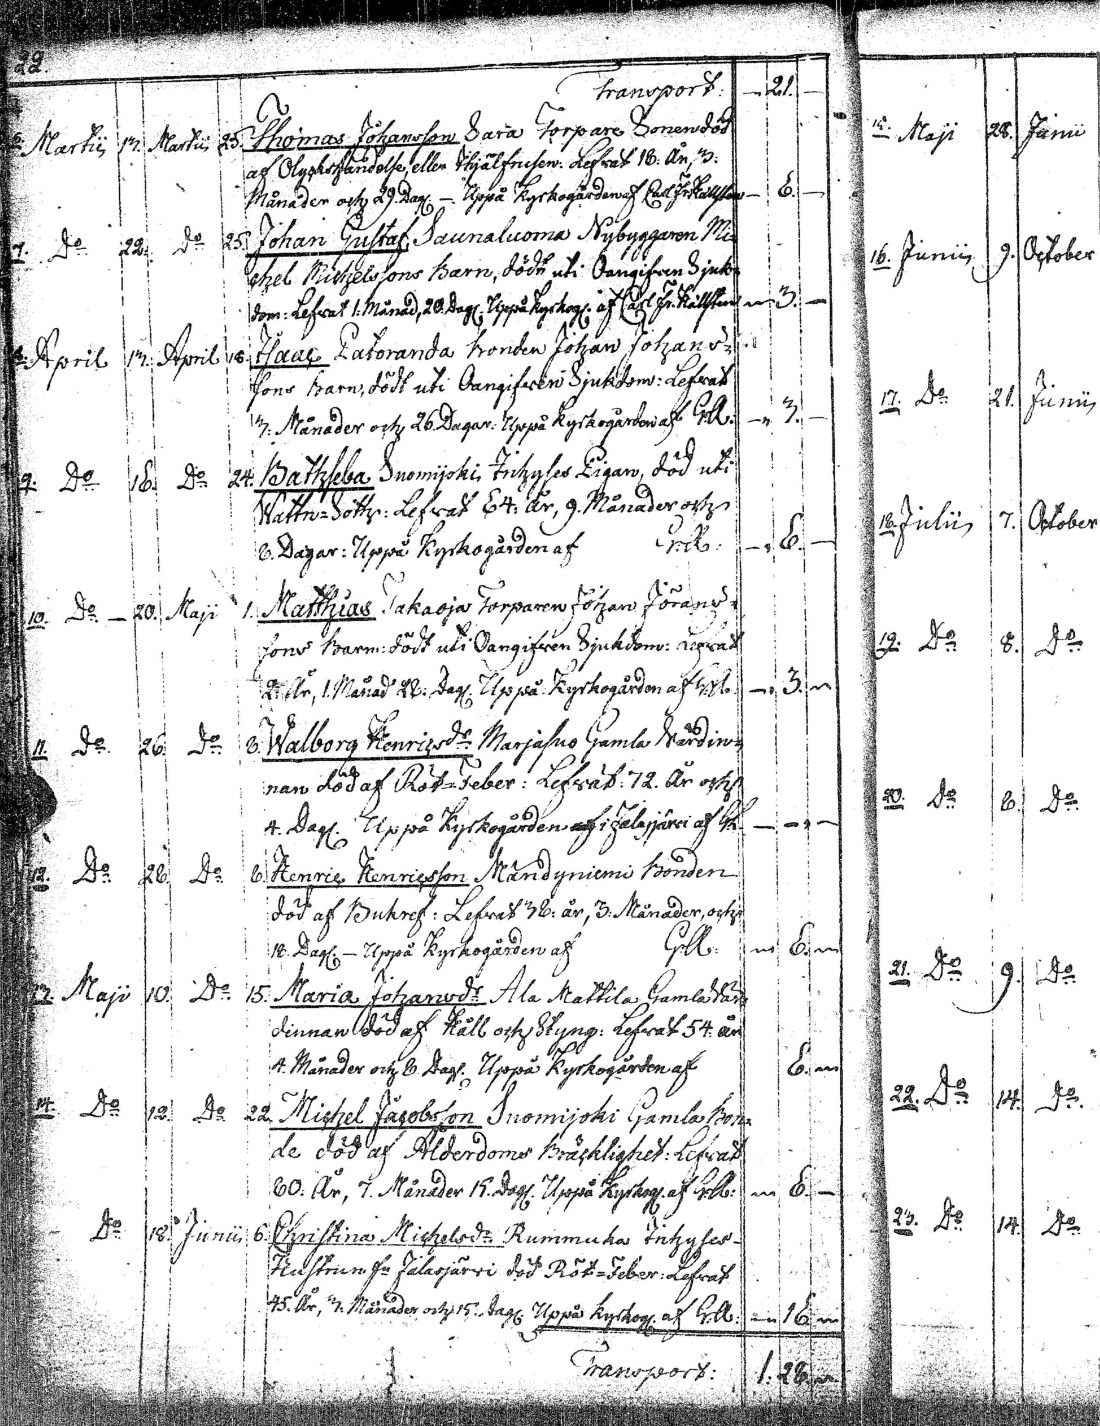 22.
Transport: — 21. —
6. Martii 17. Martii 25. Thomas Johansson Sara Torpare Sonen död
af Olyckshändelse, eller ihjälfrusen: Lefvat 18. År, 7.
Månader och 29. Dag. — Uppå Kyrkogården af Carl Fr. Kallsten — 6. —
7. Do 22. Do 25. Johan Gustaf Saunaluoma Nybyggaren Mi-
chel Michelssons Barn, dödt uti Oangifven Sjuk-
dom: Lefvat 1. Månad, 20. Dag. Uppå Kyrkog. af Carl Fr. Kallsten 3. —
8. April 17. April 18. Isaac Patoranda bonden Johan Johans-
sons barn, dödt uti Oangifven Sjukdom: Lefvat
7. Månader och 26. Dagar. Uppå Kyrkogården af 3. —
9. Do 16. Do 24. Bathseba Suomijoki Inhyses Pigan, död uti
Wattu-Sotth: Lefvat 64. År, 9. Månader och
8. Dagar: Uppå Kyrkogården af — 6. —
10. Do — 20. Maji 1. Matthias Takaoja Torparen Johan Jörans-
sons barn: dödt uti Oangifven Sjukdom: Lefvat
2. År, 1. Månad 22. Dag. Uppå Kyrkogården af 3.
11. Do 26. Do 8. Walborg Henricsdr Marjasuo Gamla Värdin-
nan död af Röt-Feber: Lefvat: 72. År och
4. Dag. Uppå Kyrkogården i Jalasjärvi af — — —
12. Do 28. Do 8. Henric Henricsson Mändyniemi bonden
död af Bukref: Lefvat 38. år, 3. Månader, och
18. Dag. — Uppå Kyrkogården af 6.
13. Maji 10. Do 15. Maria Johansdr Ala Mattila Gamla Vär-
dinnan död af Håll och Styng: Lefvat 54. år
4. Månader och 8 Dag. Uppå Kyrkogården af 6.
14. Do 12. Do 22. Michel Jacobsson Suomijoki Gamla Bon-
de död af Ålderdoms Bräcklighet: Lefvat
80. År, 7. Månader 15. Dag. Uppå Kyrkog. af 6. —
Do 18. Junii 6. Christina Michelsdr Rummuka Inhyses-
Hustrun fr Jalasjärvi död Röt-Feber: Lefvat
45. År, 7. Månader och 15. Dag. Uppå Kyrkog. af 16.
Transport: 1. 28.
15. Maji 28. Junii
16. Junii 9. October
17. Do 21. Junii
18. Julii 7. October
19. Do 8. Do
20. Do 8. Do
21. Do 9. Do
22. Do 14. Do
23. Do 14. Do